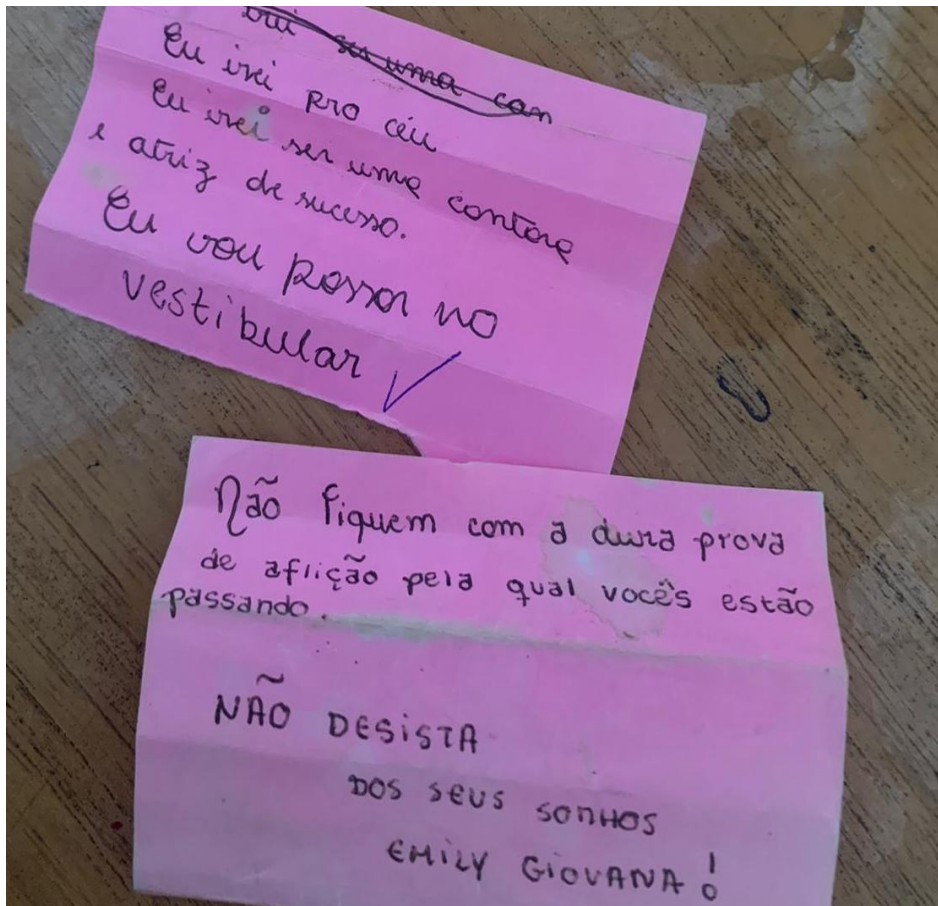 ser uma can
Eu irei pro céu
Eu irei ser uma contora
e atriz de sucesso.
Eu vou passar no
vestibular ✓
Não fiquem com a dura prova
de aflição pela qual vocês estão
passando.
NÃO DESISTA
DOS SEUS SONHOS
EMILY GIOVANA!